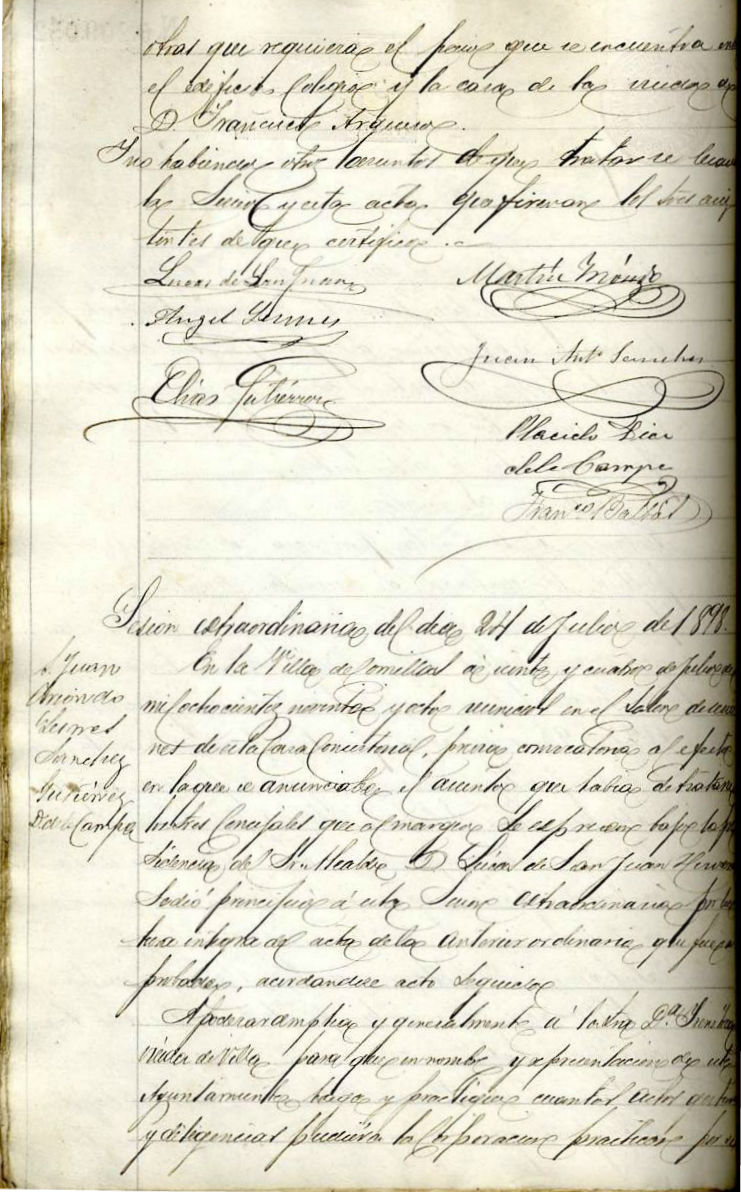 otras que requiera el paso que se encuentra en
el edificio Colegio y la casa de la viuda de
D. Francisco
Y no habiendo otros asuntos de que tratar se levantó
la Sesión y esta acta que firman los Sres asis
tentes de que certifico.
Lucas de San Juan
Martín
Angel
Juan Antº Sanchez
Elías Gutiérrez
Placido Diaz
de la Campa
Franco
Sesion extraordinaria del dia 24 de Julio de 1898.
S. Juan
Sanchez
Gutiérrez
D. de la Campa
En la Villa de Comillas á veinte y cuatro de Julio de
mil ochocientos noventa y ocho reunidos en el Salon de sesio
nes de esta Casa Consistorial, previa convocatoria al efecto
en la que se anunciaba el asunto que habia de tratarse
los Sres Concejales que al margen se expresan bajo la pre
sidencia del Sr. Alcalde D. Lucas de San Juan
Se dió principio á esta Sesion extraordinaria por lec
tura integra del acta de la anterior ordinaria que fue a
probada, acordandose acto seguido
Apoderar amplia y generalmente á la Sra Dª
Viuda de Villa para que en nombre y representacion de este
Ayuntamiento haga y practique cuantos actos
y diligencias pudiera la Corporacion practicar por si